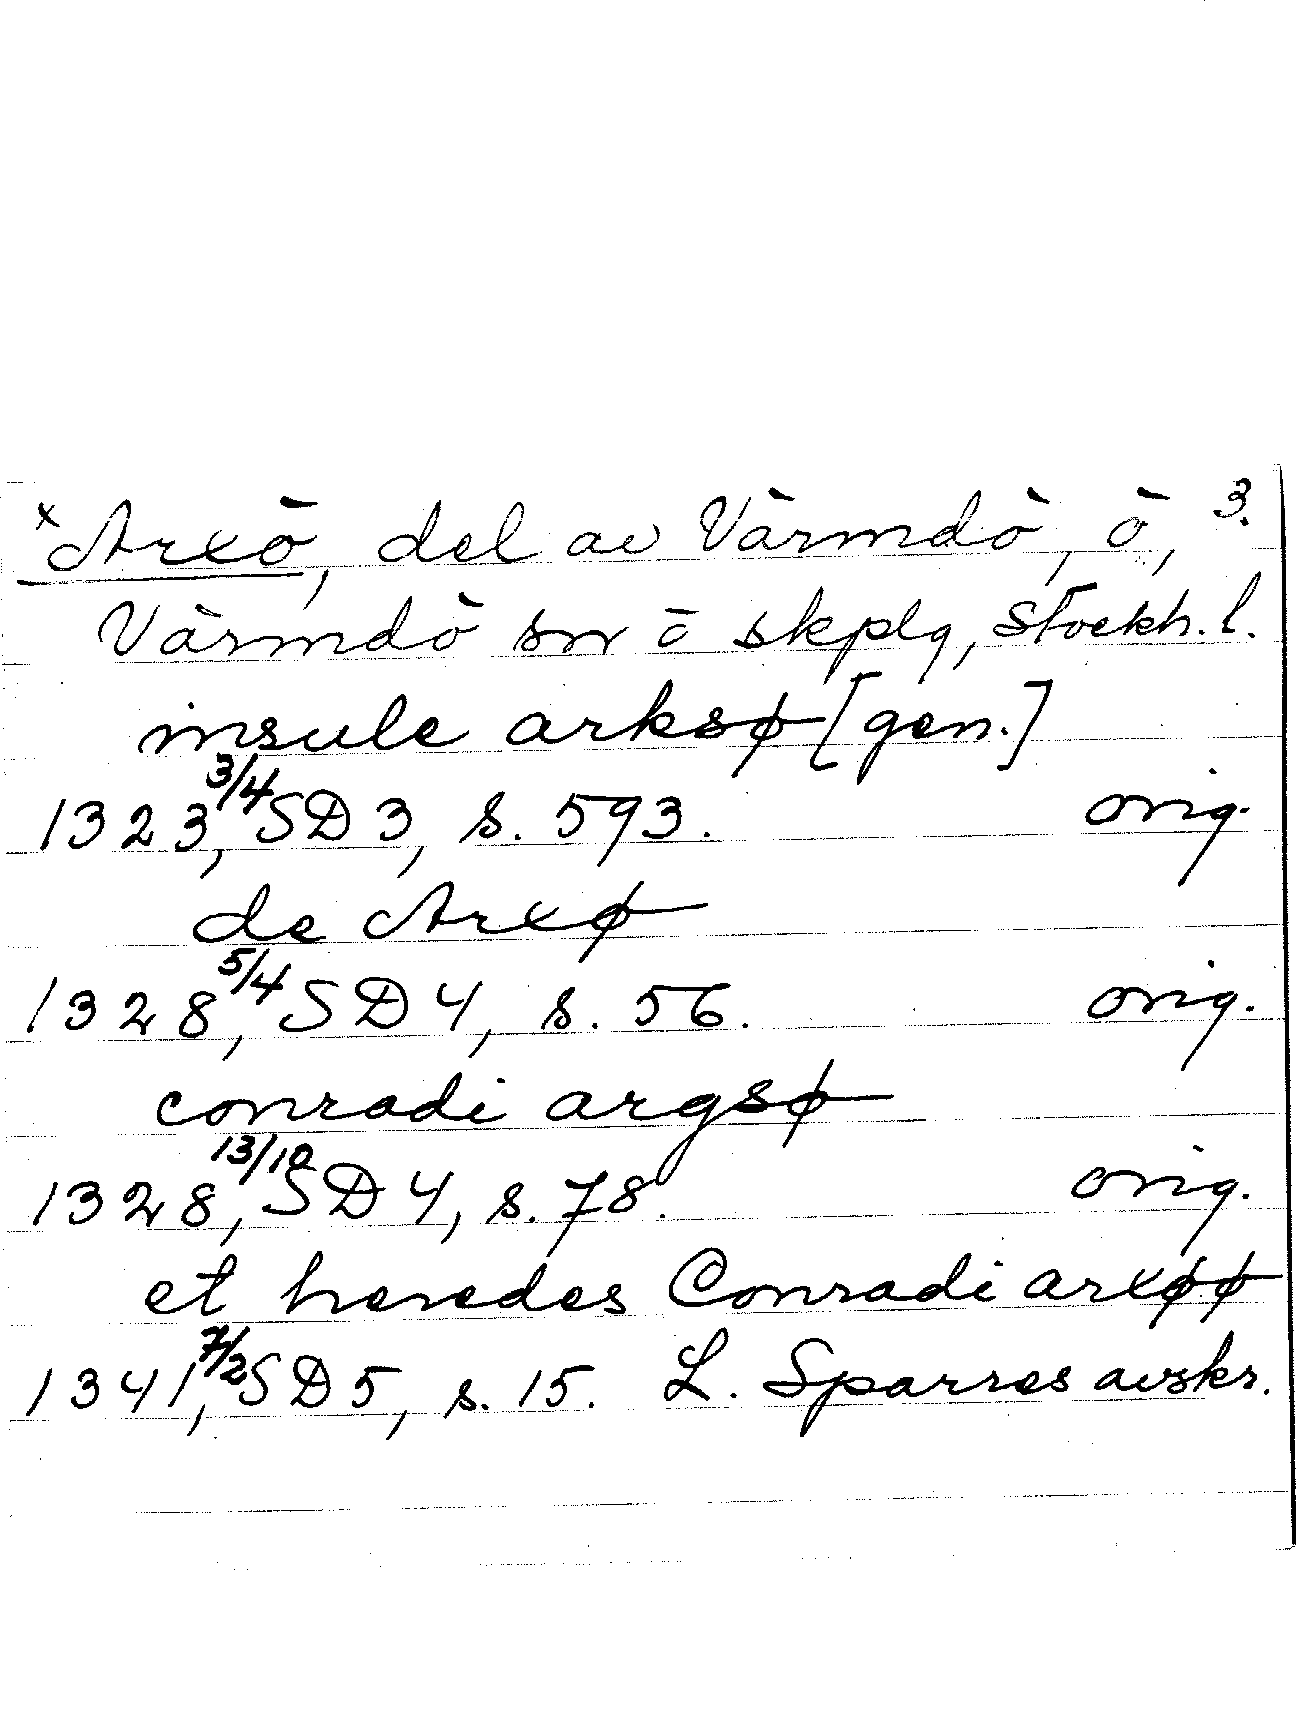 x Arxö, del av Värmdö, ö, 3.
Värmdö sn o skplg, Stockh. l.
insule arksø [gen.]
1323 3/4, SD 3, s. 593. orig.
de Arxø
1328 5/4, SD 4, s. 56. orig.
conradi argsø
1328 13/10, SD 4, s. 78. orig.
et heredes Conradi arxøø
1341 7/2, SD 5, s. 15. L. Sparres avskr.